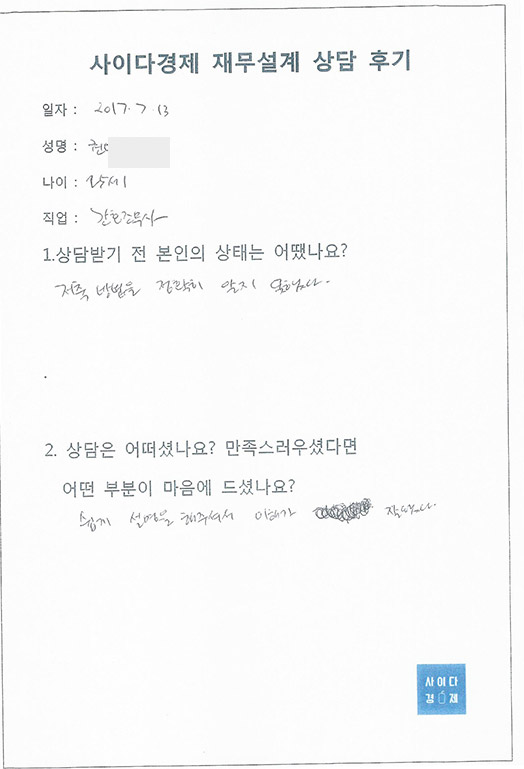 사이다경제 재무설계 상담 후기
일자 : 2017. 7. 13
성명 :
나이 :
직업 : 간호조무사
1.상담받기 전 본인의 상태는 어땠나요?
저축 방법을 정확히 알지 못했다.
2. 상담은 어떠셨나요? 만족스러우셨다면
어떤 부분이 마음에 드셨나요?
쉽게 설명을 해주셔서 이해가 잘
사이다
경제